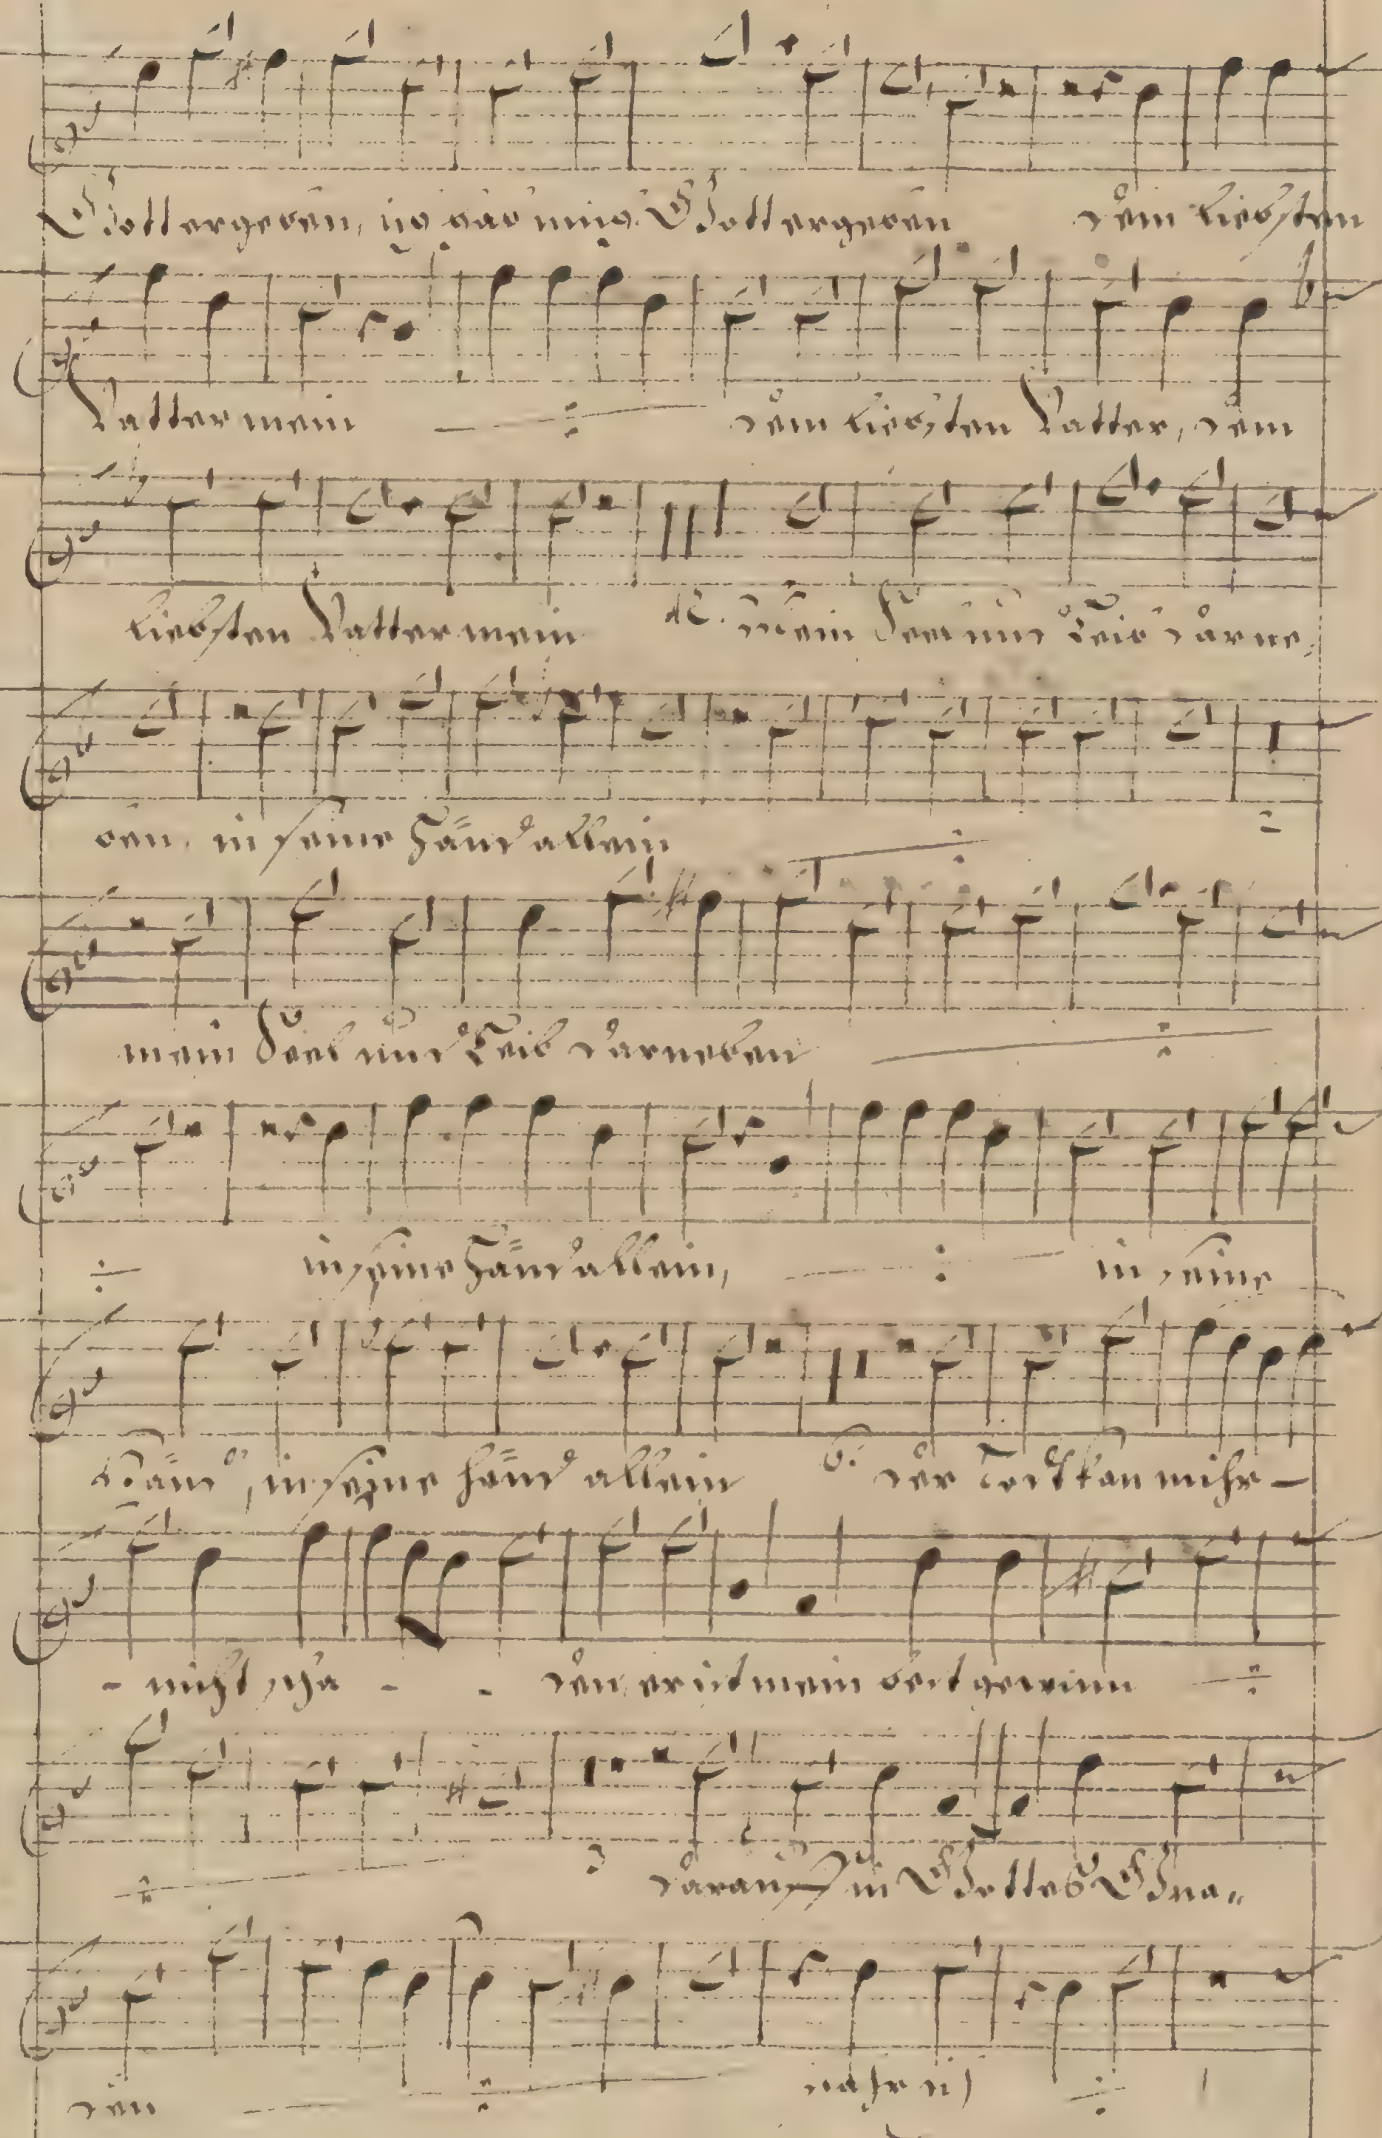 Gott ergeben, ich hab mich Gott ergeben dem liebsten
Vatter mein ÷ dem liebsten Vatter, dem
liebsten Vatter mein mein Seel und Leib darne,
ben, in seine Händ allein ÷
mein Seel und Leib darneben ÷
÷ in seine Händ allein, ÷ in seine
Händ, in seine händ allein 6. der Todt kan mihr –
- nicht scha - - den, er ist mein gewinn ÷
÷ 3 darauff in Gottes Gna„
den ÷ ÷